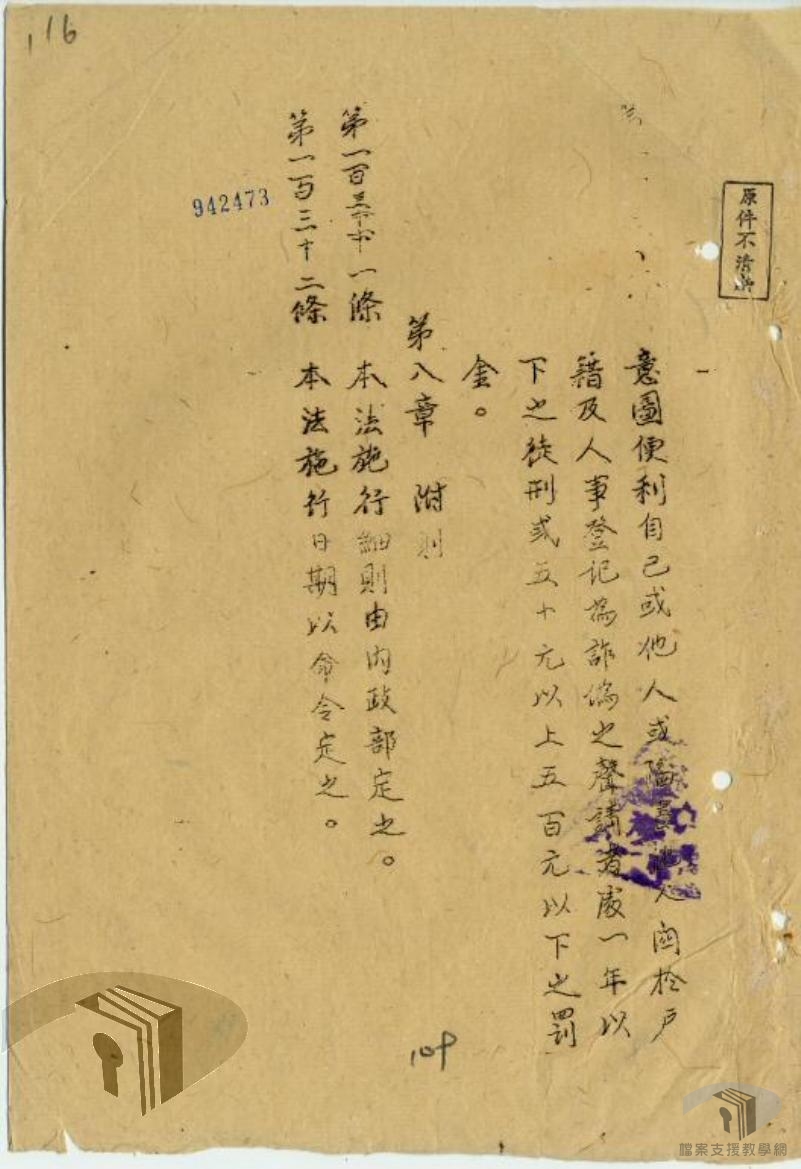 116
原件不清晰
意圖便利自己或他人或陷害他人關於戶
籍及人事登記為詐偽之聲請者處一年以
下之徒刑或五十元以上五百元以下之罰
金。
第八章 附則
第一百三十一條 本法施行細則由內政部定之。
第一百三十二條 本法施行日期以命令定之。
942473
109
檔案支援教學網